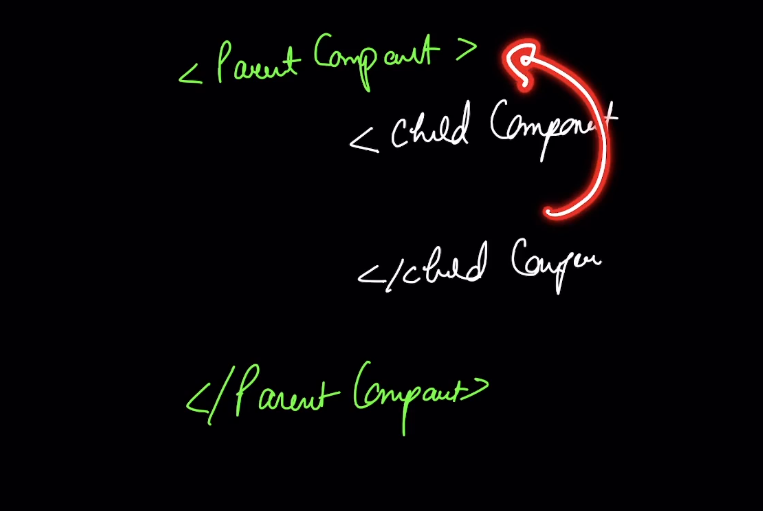 <Parent Component>
<Child Component
</child Compon
</Parent Component>